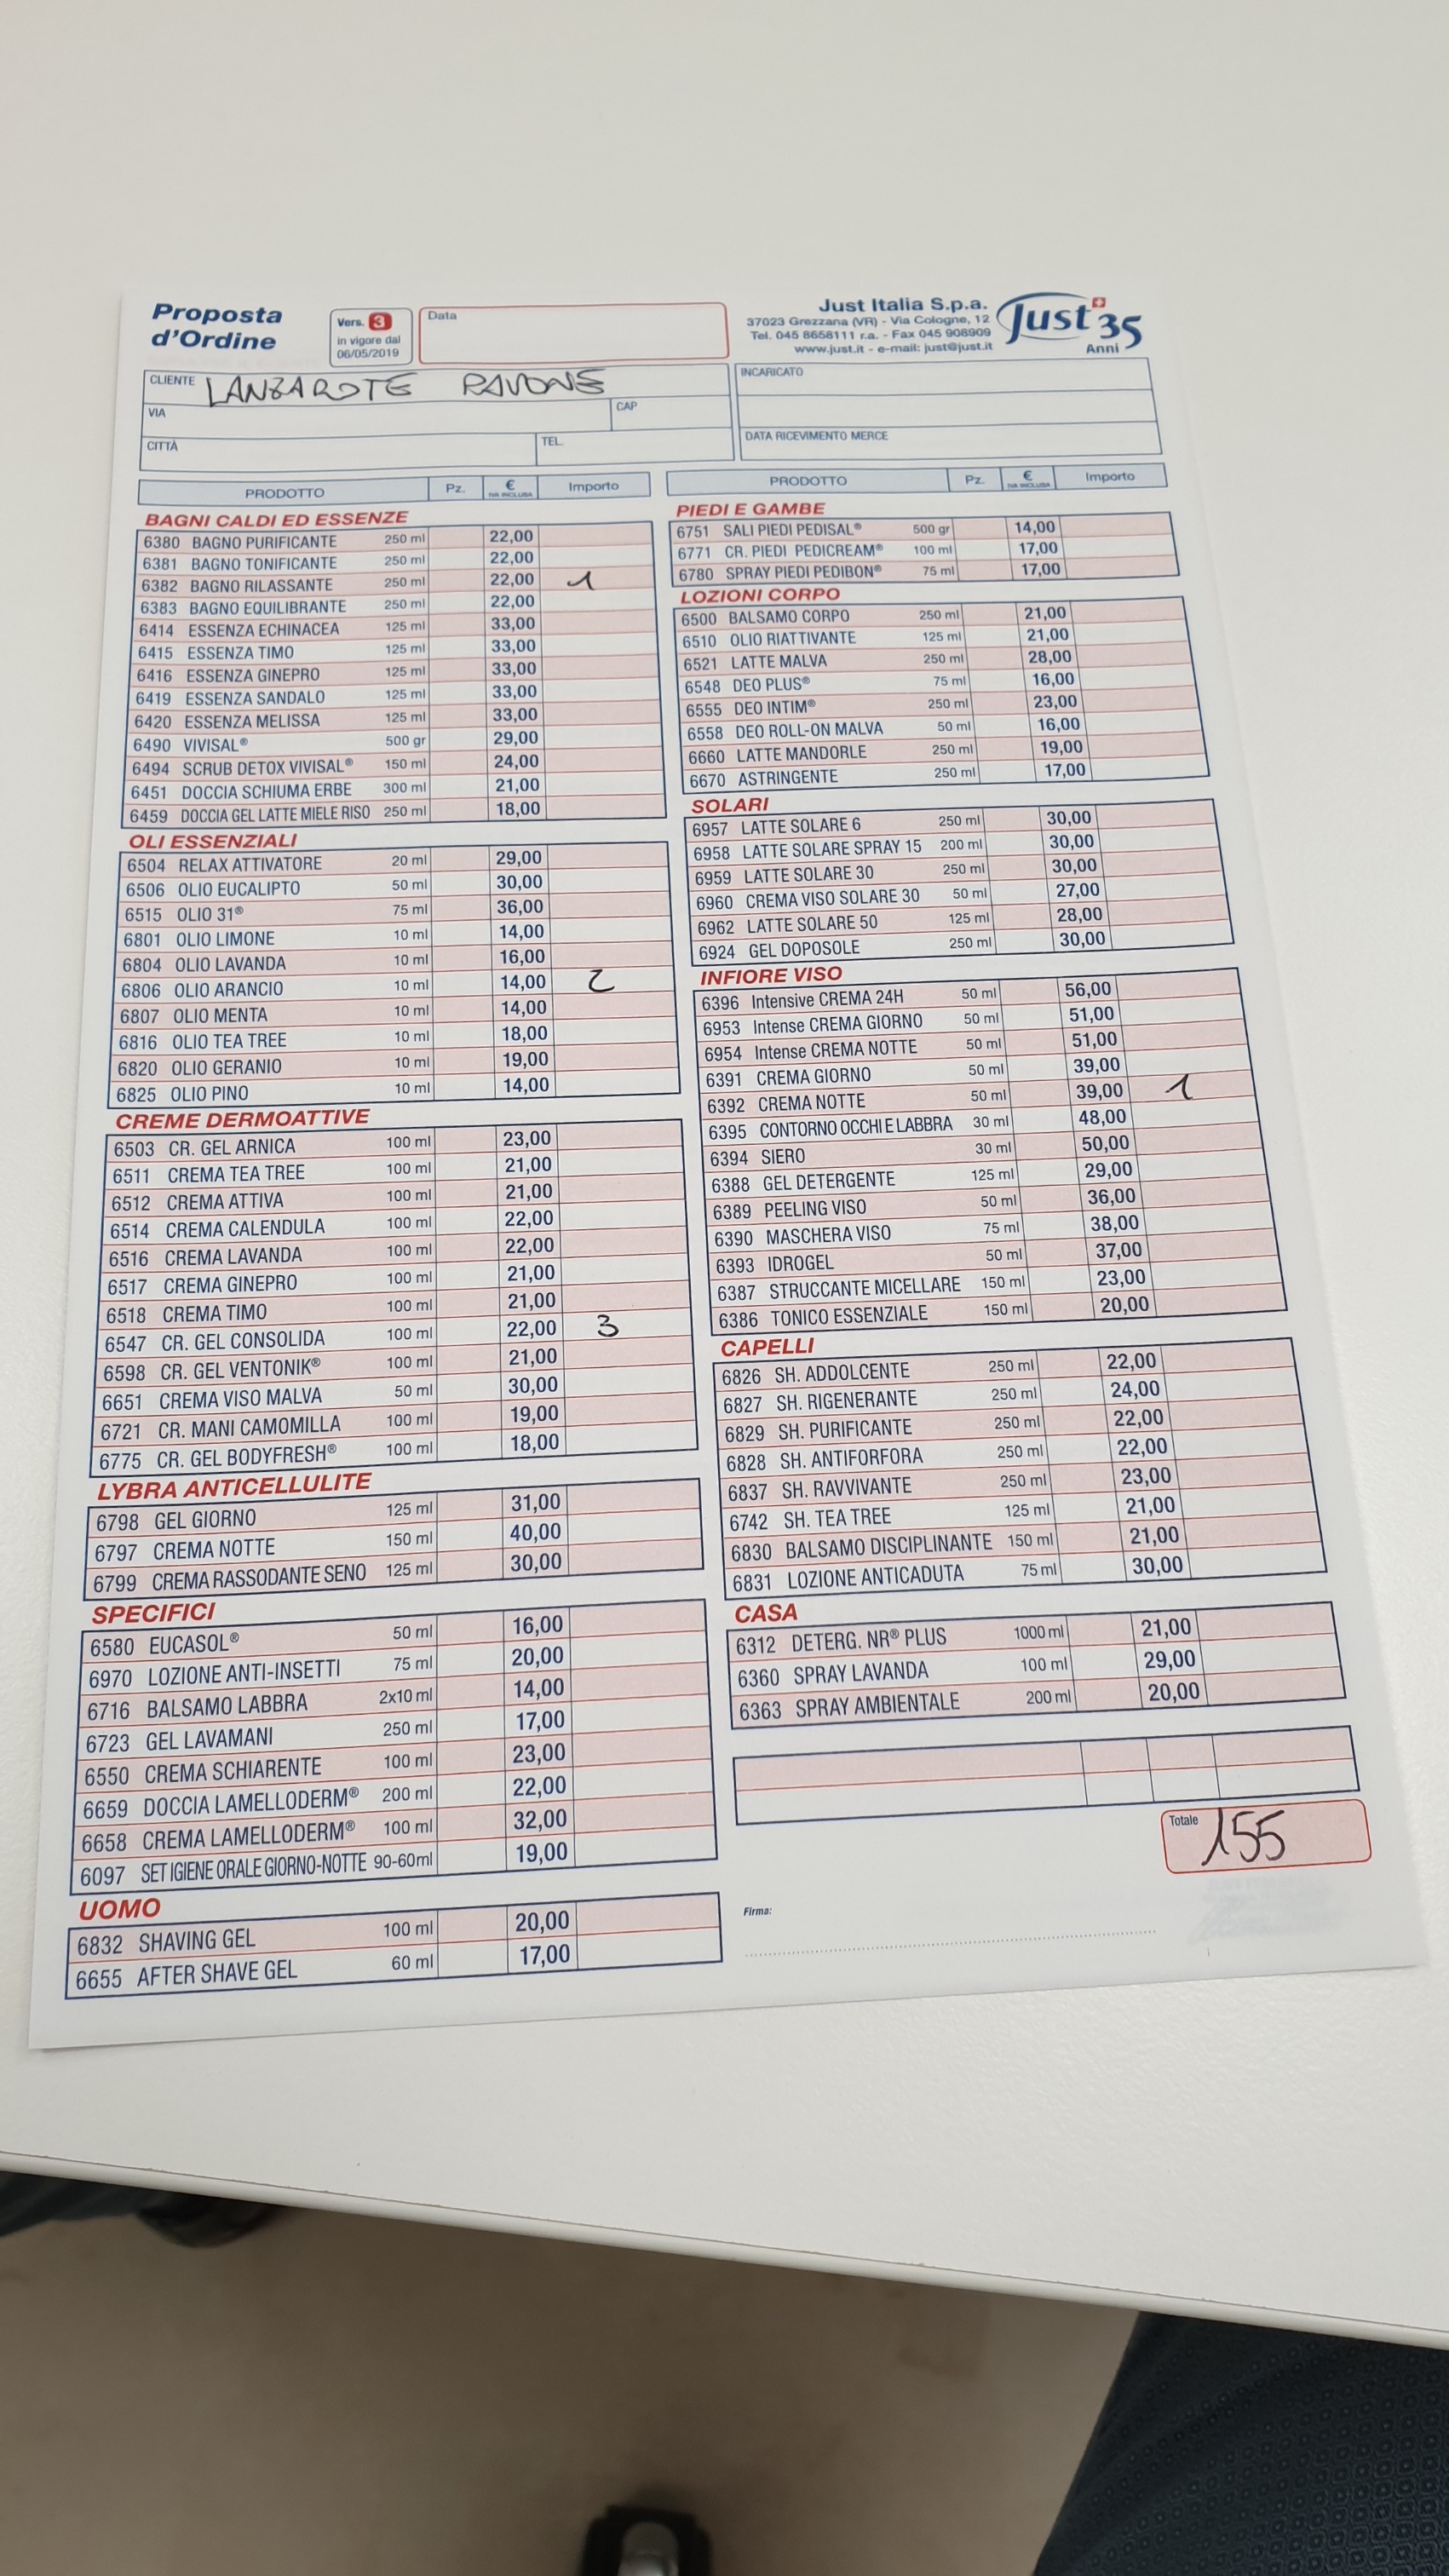 Proposta
d'Ordine
Vers. 3
in vigore dal
06/05/2019
Data
Just Italia S.p.a.
37023 Grezzana (VR) - Via Cologne, 12
Tel. 045 8658111 r.a. - Fax 045 908909
www.just.it - e-mail: just@just.it
Just 35
Anni
CLIENTE LANZAROTE PAVONE
VIA
CAP
CITTÀ
TEL.
INCARICATO
DATA RICEVIMENTO MERCE
PRODOTTO Pz. € IVA INCLUSA Importo
BAGNI CALDI ED ESSENZE
6380 BAGNO PURIFICANTE 250 ml 22,00
6381 BAGNO TONIFICANTE 250 ml 22,00
6382 BAGNO RILASSANTE 250 ml 22,00 1
6383 BAGNO EQUILIBRANTE 250 ml 22,00
6414 ESSENZA ECHINACEA 125 ml 33,00
6415 ESSENZA TIMO 125 ml 33,00
6416 ESSENZA GINEPRO 125 ml 33,00
6419 ESSENZA SANDALO 125 ml 33,00
6420 ESSENZA MELISSA 125 ml 33,00
6490 VIVISAL® 500 gr 29,00
6494 SCRUB DETOX VIVISAL® 150 ml 24,00
6451 DOCCIA SCHIUMA ERBE 300 ml 21,00
6459 DOCCIA GEL LATTE MIELE RISO 250 ml 18,00
OLI ESSENZIALI
6504 RELAX ATTIVATORE 20 ml 29,00
6506 OLIO EUCALIPTO 50 ml 30,00
6515 OLIO 31® 75 ml 36,00
6801 OLIO LIMONE 10 ml 14,00
6804 OLIO LAVANDA 10 ml 16,00
6806 OLIO ARANCIO 10 ml 14,00 2
6807 OLIO MENTA 10 ml 14,00
6816 OLIO TEA TREE 10 ml 18,00
6820 OLIO GERANIO 10 ml 19,00
6825 OLIO PINO 10 ml 14,00
CREME DERMOATTIVE
6503 CR. GEL ARNICA 100 ml 23,00
6511 CREMA TEA TREE 100 ml 21,00
6512 CREMA ATTIVA 100 ml 21,00
6514 CREMA CALENDULA 100 ml 22,00
6516 CREMA LAVANDA 100 ml 22,00
6517 CREMA GINEPRO 100 ml 21,00
6518 CREMA TIMO 100 ml 21,00
6547 CR. GEL CONSOLIDA 100 ml 22,00 3
6598 CR. GEL VENTONIK® 100 ml 21,00
6651 CREMA VISO MALVA 50 ml 30,00
6721 CR. MANI CAMOMILLA 100 ml 19,00
6775 CR. GEL BODYFRESH® 100 ml 18,00
LYBRA ANTICELLULITE
6798 GEL GIORNO 125 ml 31,00
6797 CREMA NOTTE 150 ml 40,00
6799 CREMA RASSODANTE SENO 125 ml 30,00
SPECIFICI
6580 EUCASOL® 50 ml 16,00
6970 LOZIONE ANTI-INSETTI 75 ml 20,00
6716 BALSAMO LABBRA 2x10 ml 14,00
6723 GEL LAVAMANI 250 ml 17,00
6550 CREMA SCHIARENTE 100 ml 23,00
6659 DOCCIA LAMELLODERM® 200 ml 22,00
6658 CREMA LAMELLODERM® 100 ml 32,00
6097 SET IGIENE ORALE GIORNO-NOTTE 90-60ml 19,00
UOMO
6832 SHAVING GEL 100 ml 20,00
6655 AFTER SHAVE GEL 60 ml 17,00
PRODOTTO Pz. € IVA INCLUSA Importo
PIEDI E GAMBE
6751 SALI PIEDI PEDISAL® 500 gr 14,00
6771 CR. PIEDI PEDICREAM® 100 ml 17,00
6780 SPRAY PIEDI PEDIBON® 75 ml 17,00
LOZIONI CORPO
6500 BALSAMO CORPO 250 ml 21,00
6510 OLIO RIATTIVANTE 125 ml 21,00
6521 LATTE MALVA 250 ml 28,00
6548 DEO PLUS® 75 ml 16,00
6555 DEO INTIM® 250 ml 23,00
6558 DEO ROLL-ON MALVA 50 ml 16,00
6660 LATTE MANDORLE 250 ml 19,00
6670 ASTRINGENTE 250 ml 17,00
SOLARI
6957 LATTE SOLARE 6 250 ml 30,00
6958 LATTE SOLARE SPRAY 15 200 ml 30,00
6959 LATTE SOLARE 30 250 ml 30,00
6960 CREMA VISO SOLARE 30 50 ml 27,00
6962 LATTE SOLARE 50 125 ml 28,00
6924 GEL DOPOSOLE 250 ml 30,00
INFIORE VISO
6396 Intensive CREMA 24H 50 ml 56,00
6953 Intense CREMA GIORNO 50 ml 51,00
6954 Intense CREMA NOTTE 50 ml 51,00
6391 CREMA GIORNO 50 ml 39,00
6392 CREMA NOTTE 50 ml 39,00 1
6395 CONTORNO OCCHI E LABBRA 30 ml 48,00
6394 SIERO 30 ml 50,00
6388 GEL DETERGENTE 125 ml 29,00
6389 PEELING VISO 50 ml 36,00
6390 MASCHERA VISO 75 ml 38,00
6393 IDROGEL 50 ml 37,00
6387 STRUCCANTE MICELLARE 150 ml 23,00
6386 TONICO ESSENZIALE 150 ml 20,00
CAPELLI
6826 SH. ADDOLCENTE 250 ml 22,00
6827 SH. RIGENERANTE 250 ml 24,00
6829 SH. PURIFICANTE 250 ml 22,00
6828 SH. ANTIFORFORA 250 ml 22,00
6837 SH. RAVVIVANTE 250 ml 23,00
6742 SH. TEA TREE 125 ml 21,00
6830 BALSAMO DISCIPLINANTE 150 ml 21,00
6831 LOZIONE ANTICADUTA 75 ml 30,00
CASA
6312 DETERG. NR® PLUS 1000 ml 21,00
6360 SPRAY LAVANDA 100 ml 29,00
6363 SPRAY AMBIENTALE 200 ml 20,00
Totale 155
Firma: